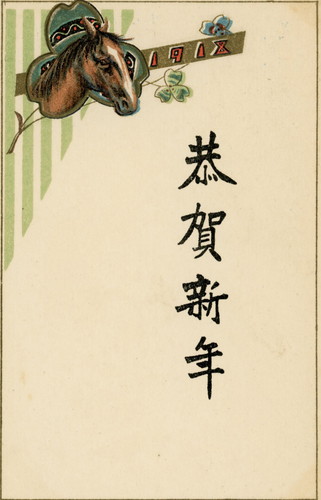 1918
恭賀新年